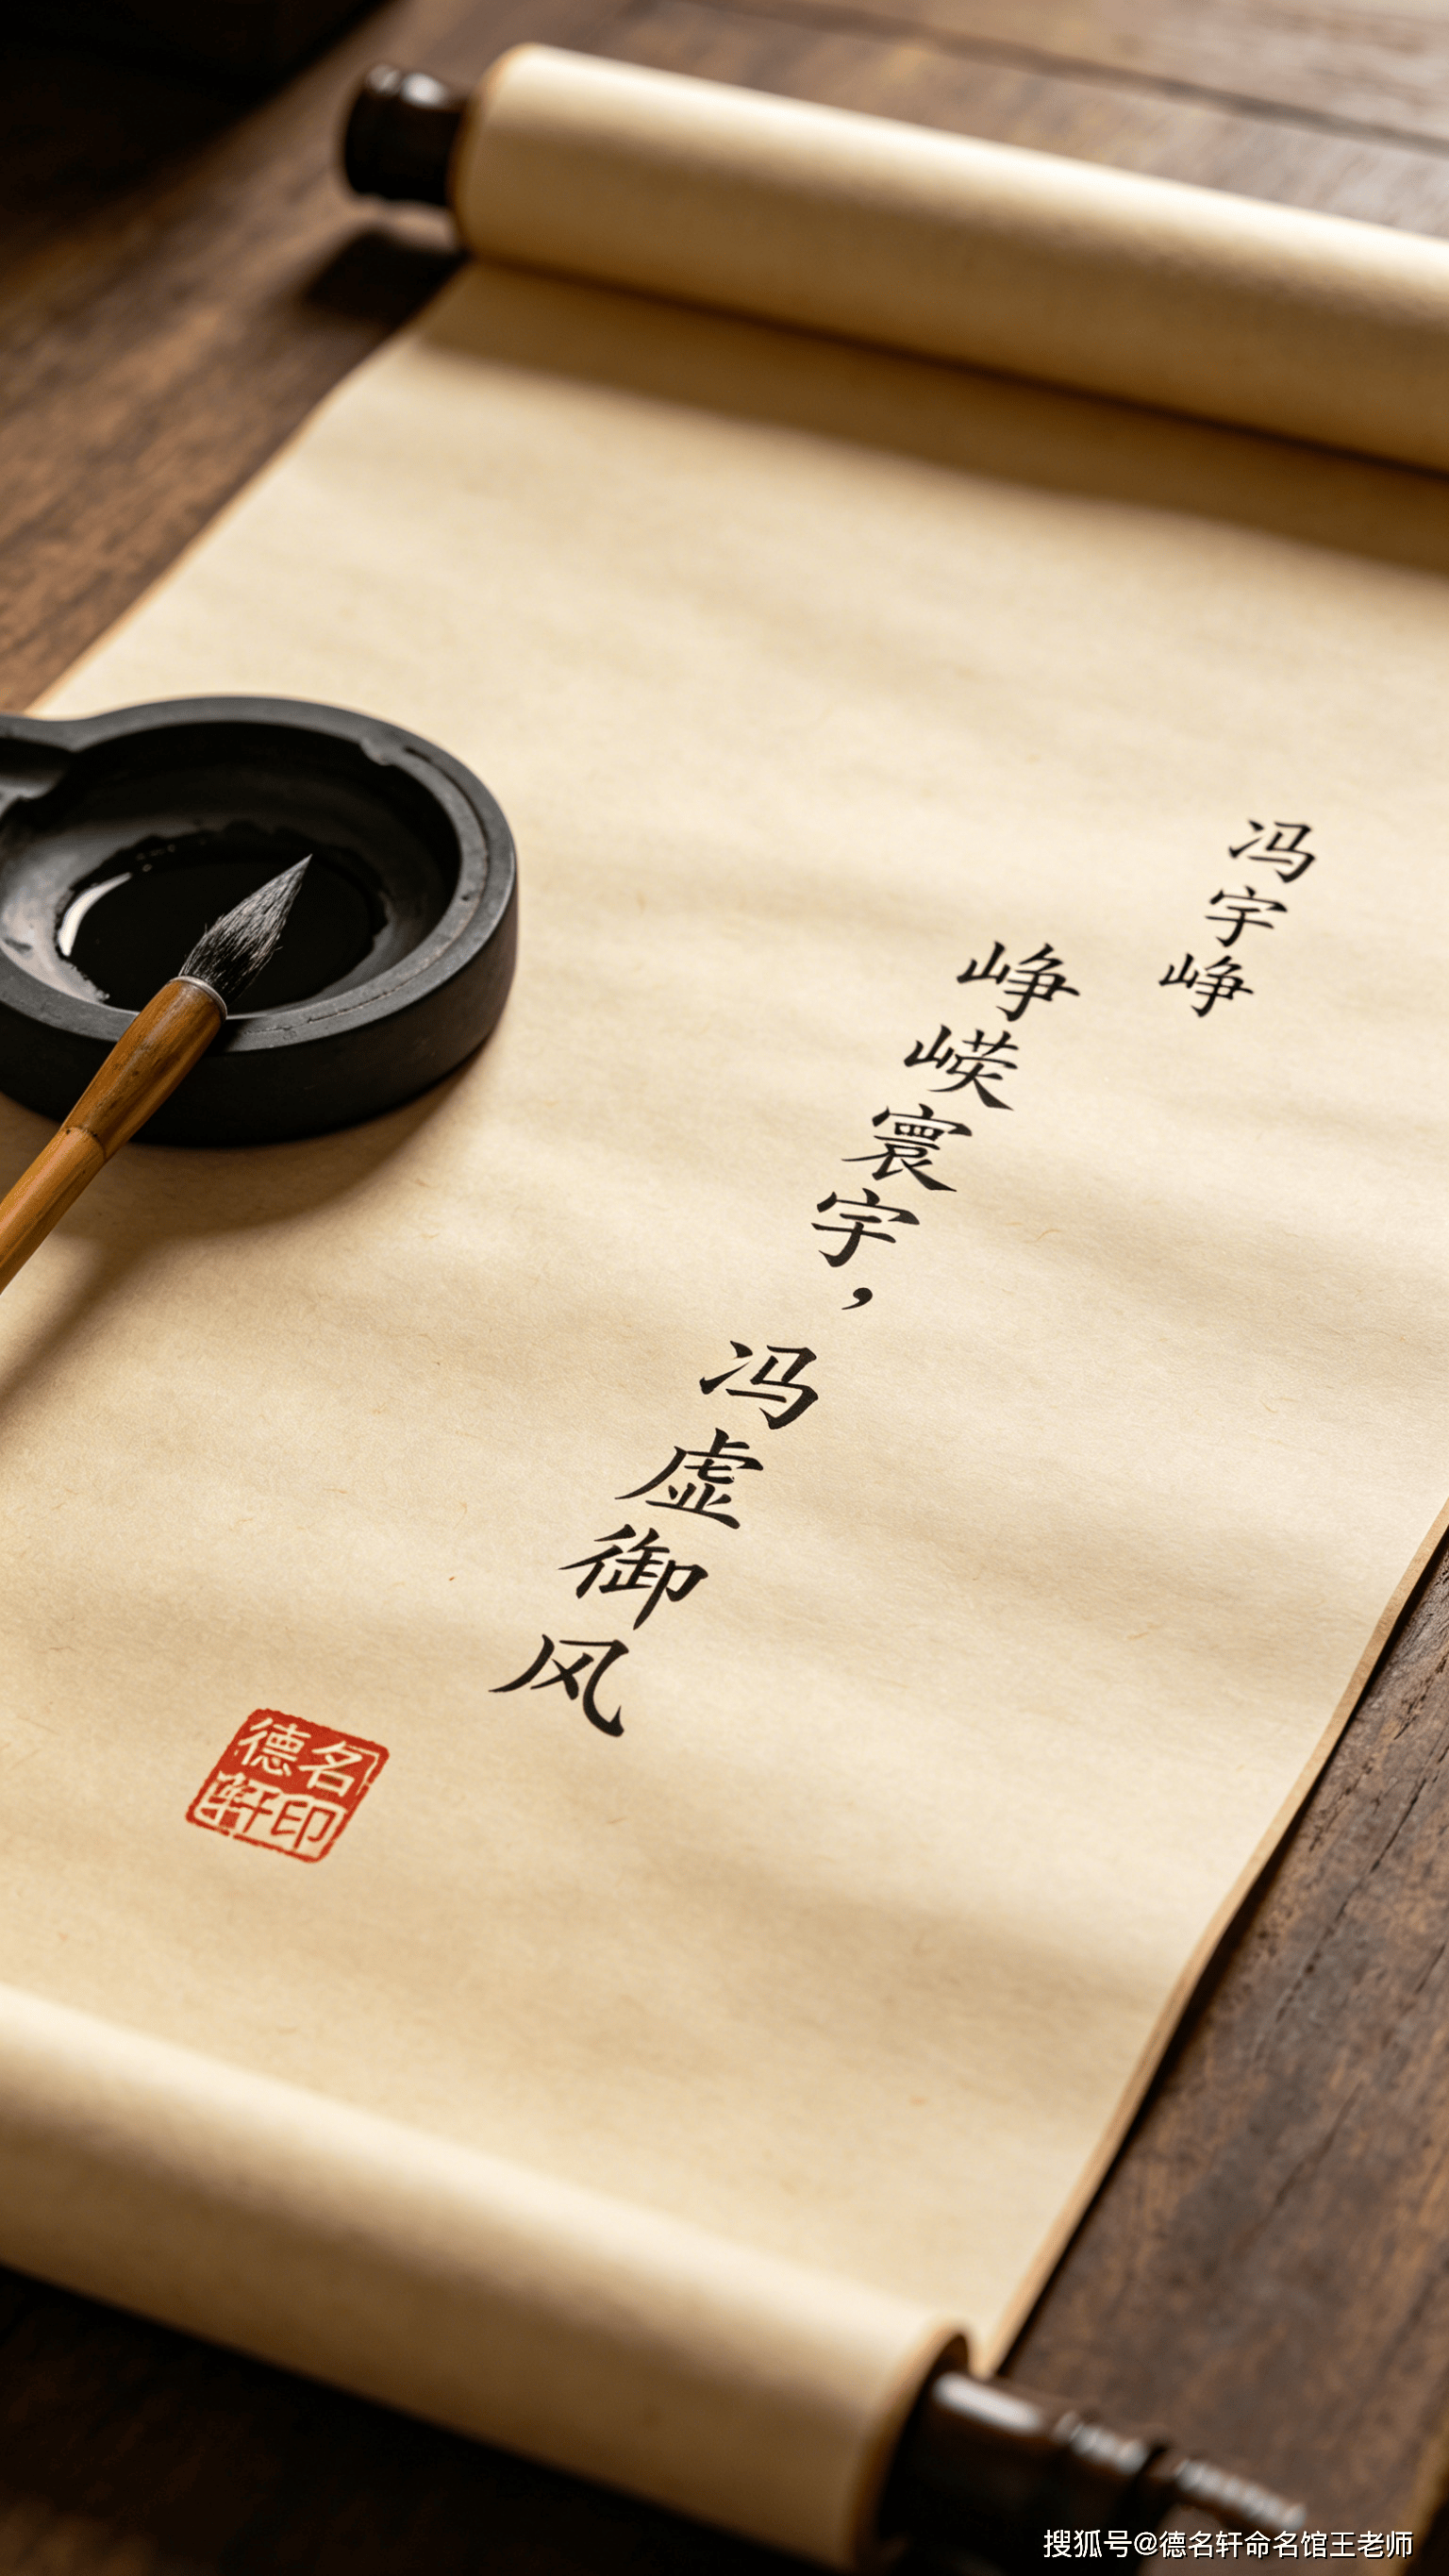 冯宇峥
峥嵘寰宇，冯虚御风
德名
轩印
搜狐号@德名轩命名馆王老师